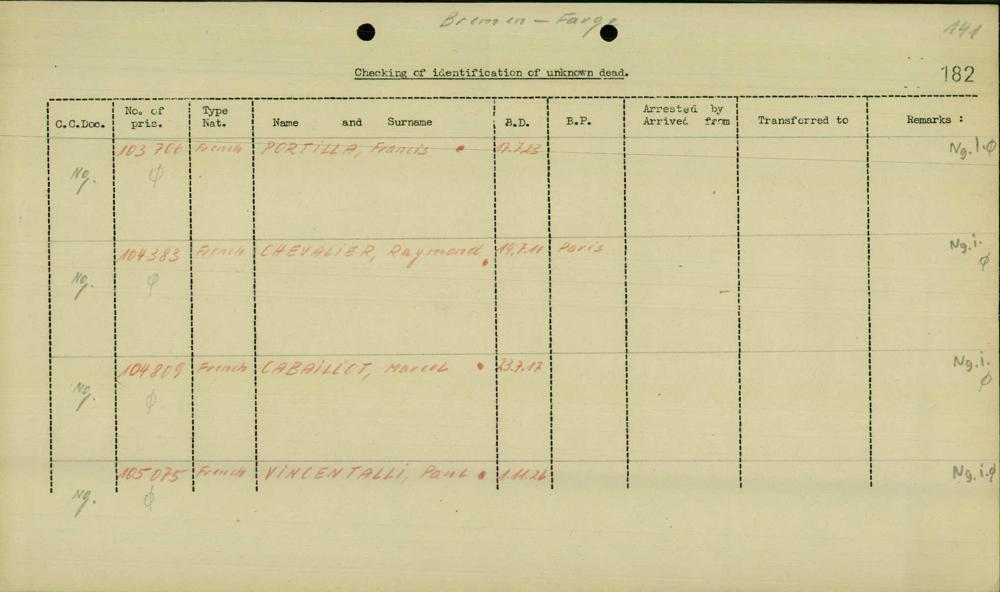 Bremen - Farge
141
Checking of identification of unknown dead.
182
C.C.Doc. No. of pris. Type Nat. Name and Surname B.D. B.P. Arrested by Arrived from Transferred to Remarks :
103 706 French PORTILLA, Francis 17.7.23 Ng.i.ϕ
Ng. ϕ
104383 French CHEVALIER, Raymond Paris Ng.i.
Ng. ϕ ϕ
104809 French CABAILLOT, Marcel 23.7.17 Ng.i.
Ng. ϕ ϕ
105075 French VINCENTALLI, Paul 1.11.26 Ng.i.ϕ
Ng. ϕ